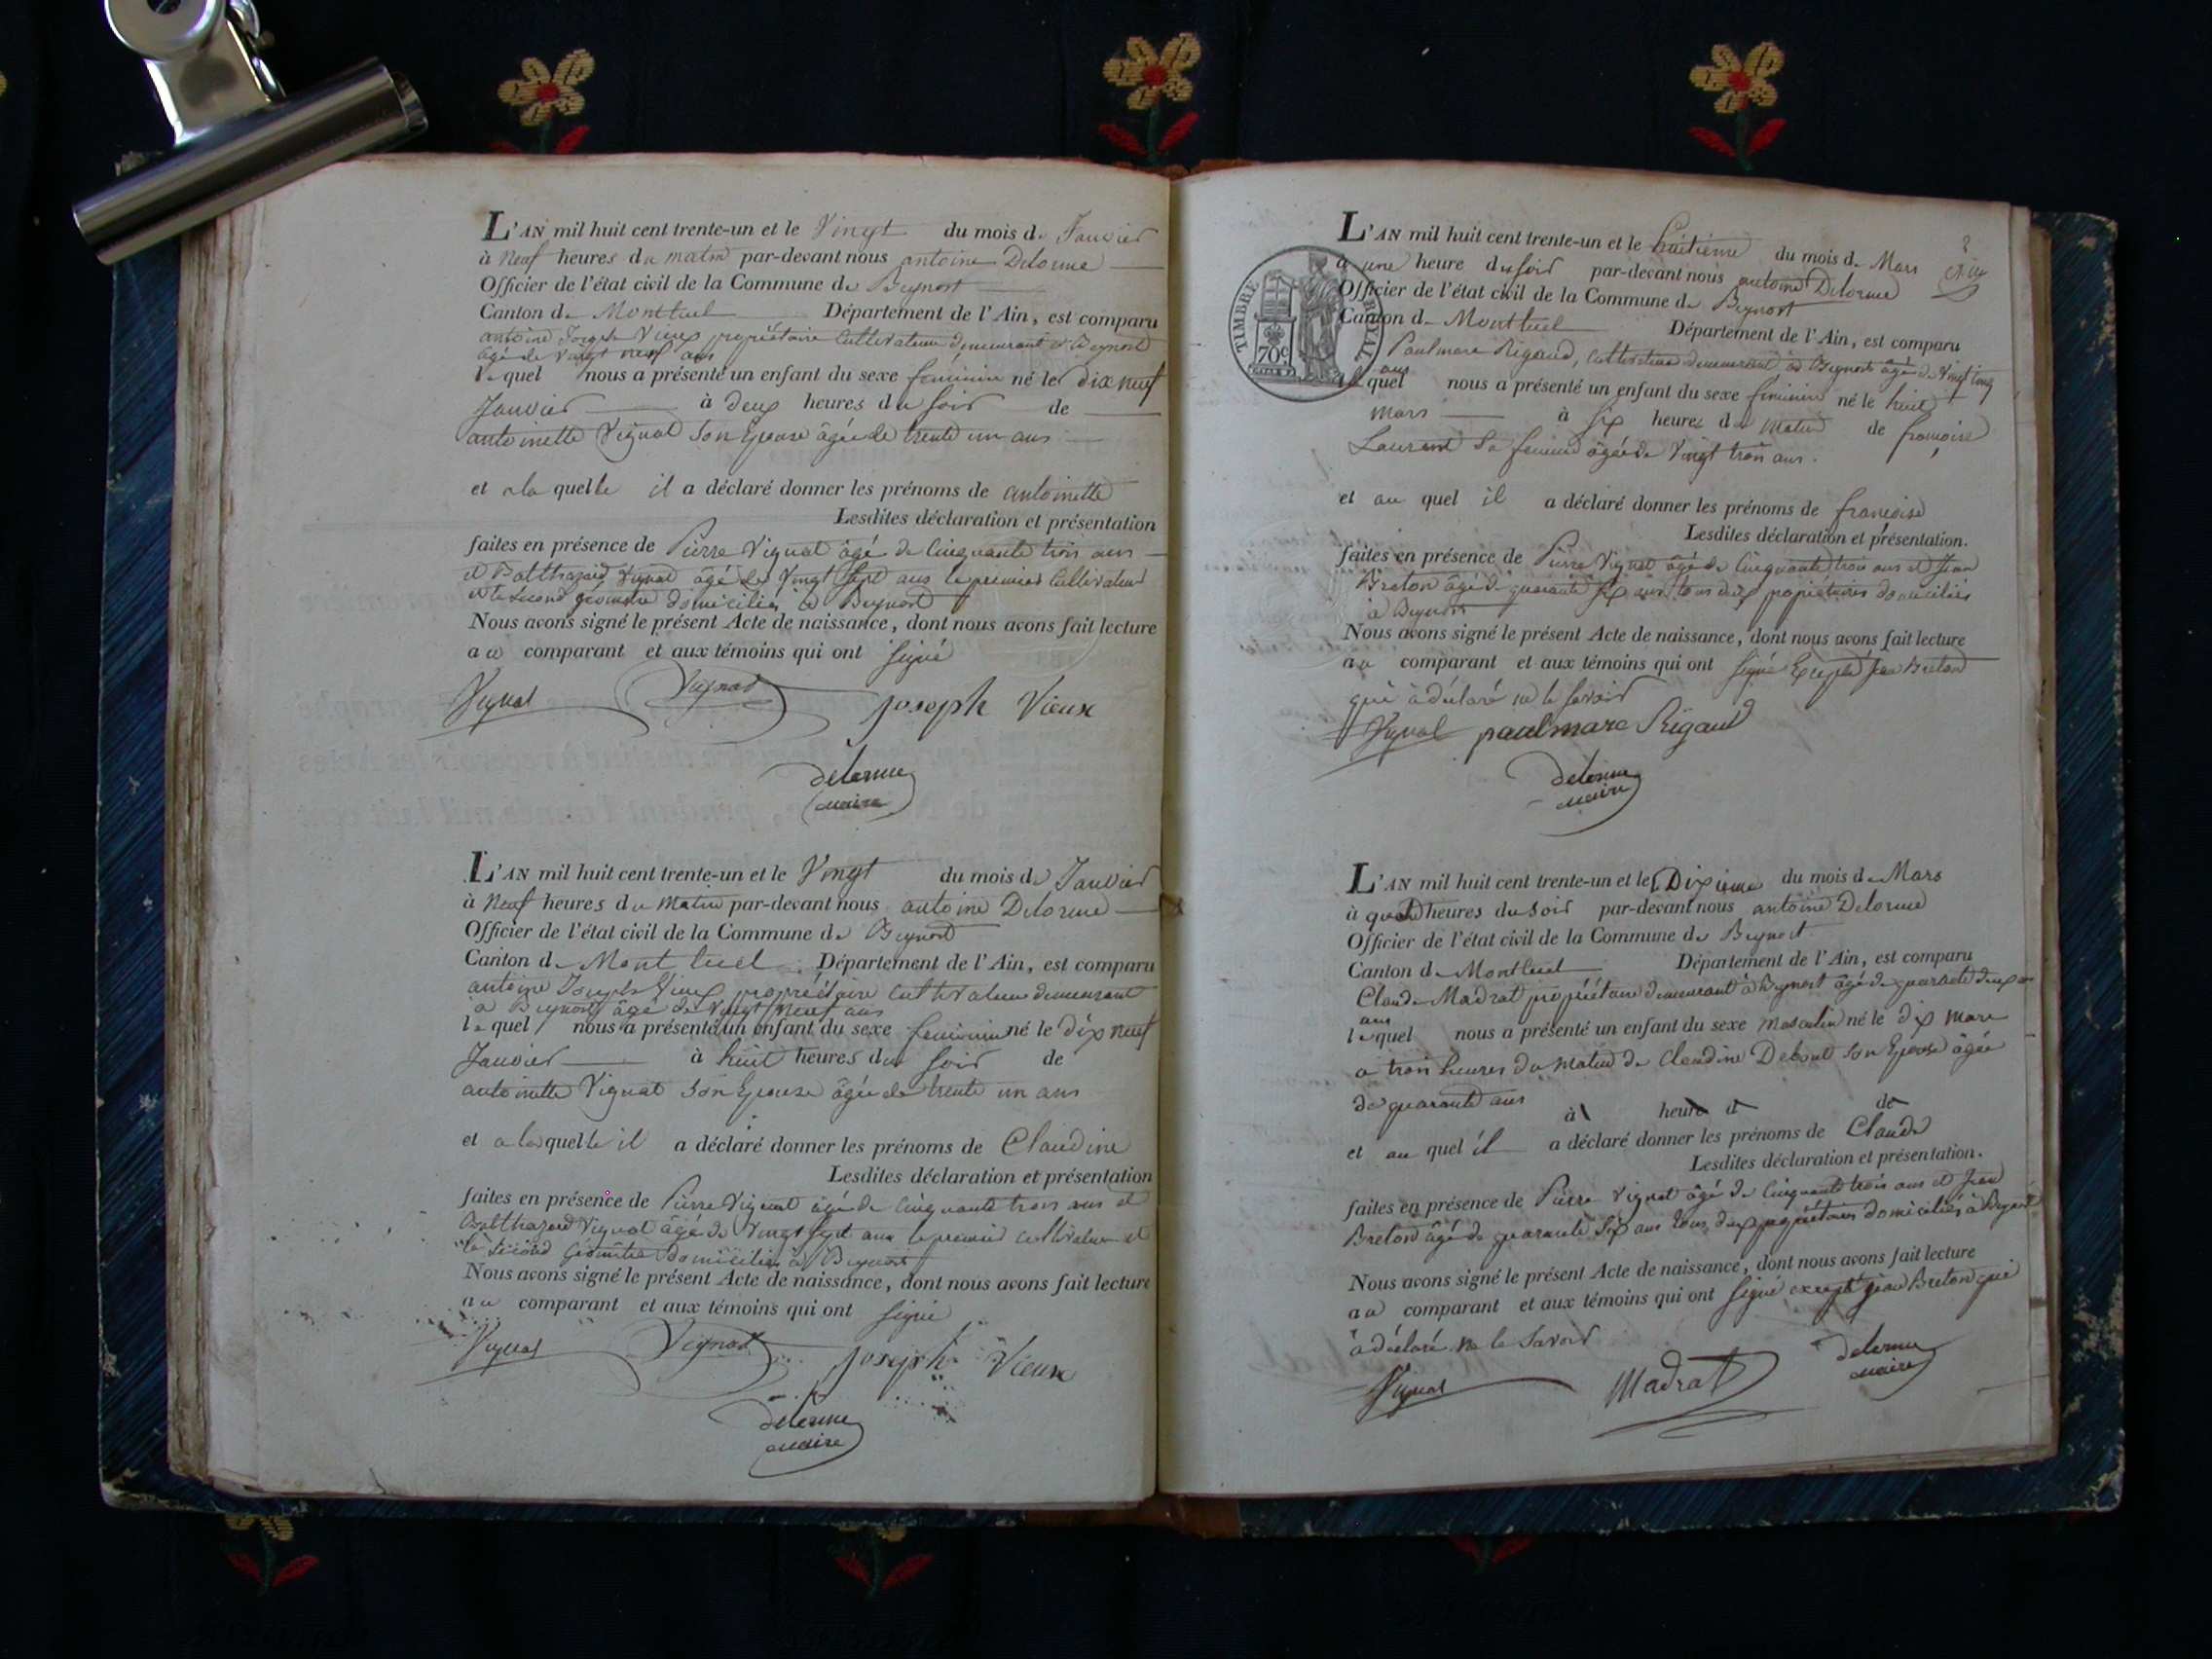 L'AN mil huit cent trente-un et le Vingt du mois de Janvier
à Neuf heures du matin par-devant nous antoine Delorme
Officier de l'état civil de la Commune de Beynost
Canton de Montluel Département de l'Ain, est comparu
antoine Joseph Vieux propriétaire Cultivateur demeurant à Beynost
âgé de Vingt neuf ans
lequel nous a présenté un enfant du sexe feminin né le dix neuf
Janvier à deux heures du soir de
antoinette Vignat son Epouse âgée de trente un ans
et a la quelle il a déclaré donner les prénoms de antoinette
Lesdites déclaration et présentation
faites en présence de Pierre Vignat âgé de Cinquante trois ans
et Balthazard Vignat âgé de Vingt sept ans le premier Cultivateur
et le second géomètre domiciliés à Beynost
Nous avons signé le présent Acte de naissance, dont nous avons fait lecture
au comparant et aux témoins qui ont signé
Vignat Vignat joseph Vieux
delorme
maire
L'AN mil huit cent trente-un et le Vingt du mois de Janvier
à Neuf heures du Matin par-devant nous antoine Delorme
Officier de l'état civil de la Commune de Beynost
Canton de Montluel Département de l'Ain, est comparu
antoine Joseph Vieux propriétaire cultivateur demeurant
à Beynost âgé de Vingt neuf ans
lequel nous a présenté un enfant du sexe feminin né le dix neuf
Janvier à huit heures du soir de
antoinette Vignat son Epouse âgée de trente un ans
et a la quelle il a déclaré donner les prénoms de Claudine
Lesdites déclaration et présentation
faites en présence de Pierre Vignat âgé de Cinquante trois ans et
Balthazard Vignat âgé de Vingt sept ans le premier cultivateur et
le second Géomètre domiciliés à Beynost
Nous avons signé le présent Acte de naissance, dont nous avons fait lecture
au comparant et aux témoins qui ont signé
Vignat Vignat joseph Vieux
delorme
maire
L'AN mil huit cent trente-un et le huitieme du mois de Mars
à une heure du soir par-devant nous antoine Delorme
Officier de l'état civil de la Commune de Beynost
Canton de Montluel Département de l'Ain, est comparu
TIMBRE ROYAL
70c
Paulmarc Rigaud, cultivateur demeurant à Beynost âgé de Vingt cinq
ans
lequel nous a présenté un enfant du sexe feminin né le huit
mars à six heures du matin de françoise
Laurent sa femme âgée de Vingt trois ans.
et au quel il a déclaré donner les prénoms de françoise
Lesdites déclaration et présentation.
faites en présence de Pierre Vignat âgé de Cinquante trois ans et Jean
Breton âgé de quarante six ans tous deux propriétaires domiciliés
à Beynost
Nous avons signé le présent Acte de naissance, dont nous avons fait lecture
au comparant et aux témoins qui ont signé Excepté Jean Breton
qui à déclaré ne le savoir
Vignat paulmarc Rigaud
delorme
maire
L'AN mil huit cent trente-un et le Dixieme du mois de Mars
à heures du soir par-devant nous antoine Delorme
Officier de l'état civil de la Commune de Beynost
Canton de Montluel Département de l'Ain, est comparu
Claude Madrat propriétaire demeurant à Beynost âgé de quarante deux
ans
lequel nous a présenté un enfant du sexe Masculin né le dix mars
a trois heures du matin de Claudine son Epouse âgée
de quarante ans
à heure d de
et au quel il a déclaré donner les prénoms de Claude
Lesdites déclaration et présentation.
faites en présence de Pierre Vignat âgé de Cinquante trois ans et Jean
Breton âgé de quarante six ans tous deux propriétaires domiciliés à Beynost
Nous avons signé le présent Acte de naissance, dont nous avons fait lecture
au comparant et aux témoins qui ont signé excepté jean Breton qui
à déclaré ne le savoir
Vignat Madrat delorme
maire